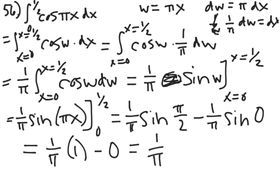 56) ∫₀^{1/2} cos πx dx   w = πx   dw = π dx
1/π dw = dx
= ∫_{x=0}^{x=1/2} cos w · dx = ∫_{x=0}^{x=1/2} cos w · 1/π dw
= 1/π ∫_{x=0}^{x=1/2} cos w dw = 1/π sin w ]_{x=0}^{x=1/2}
= 1/π sin(πx) ]₀^{1/2} = 1/π sin π/2 − 1/π sin 0
= 1/π (1) − 0 = 1/π